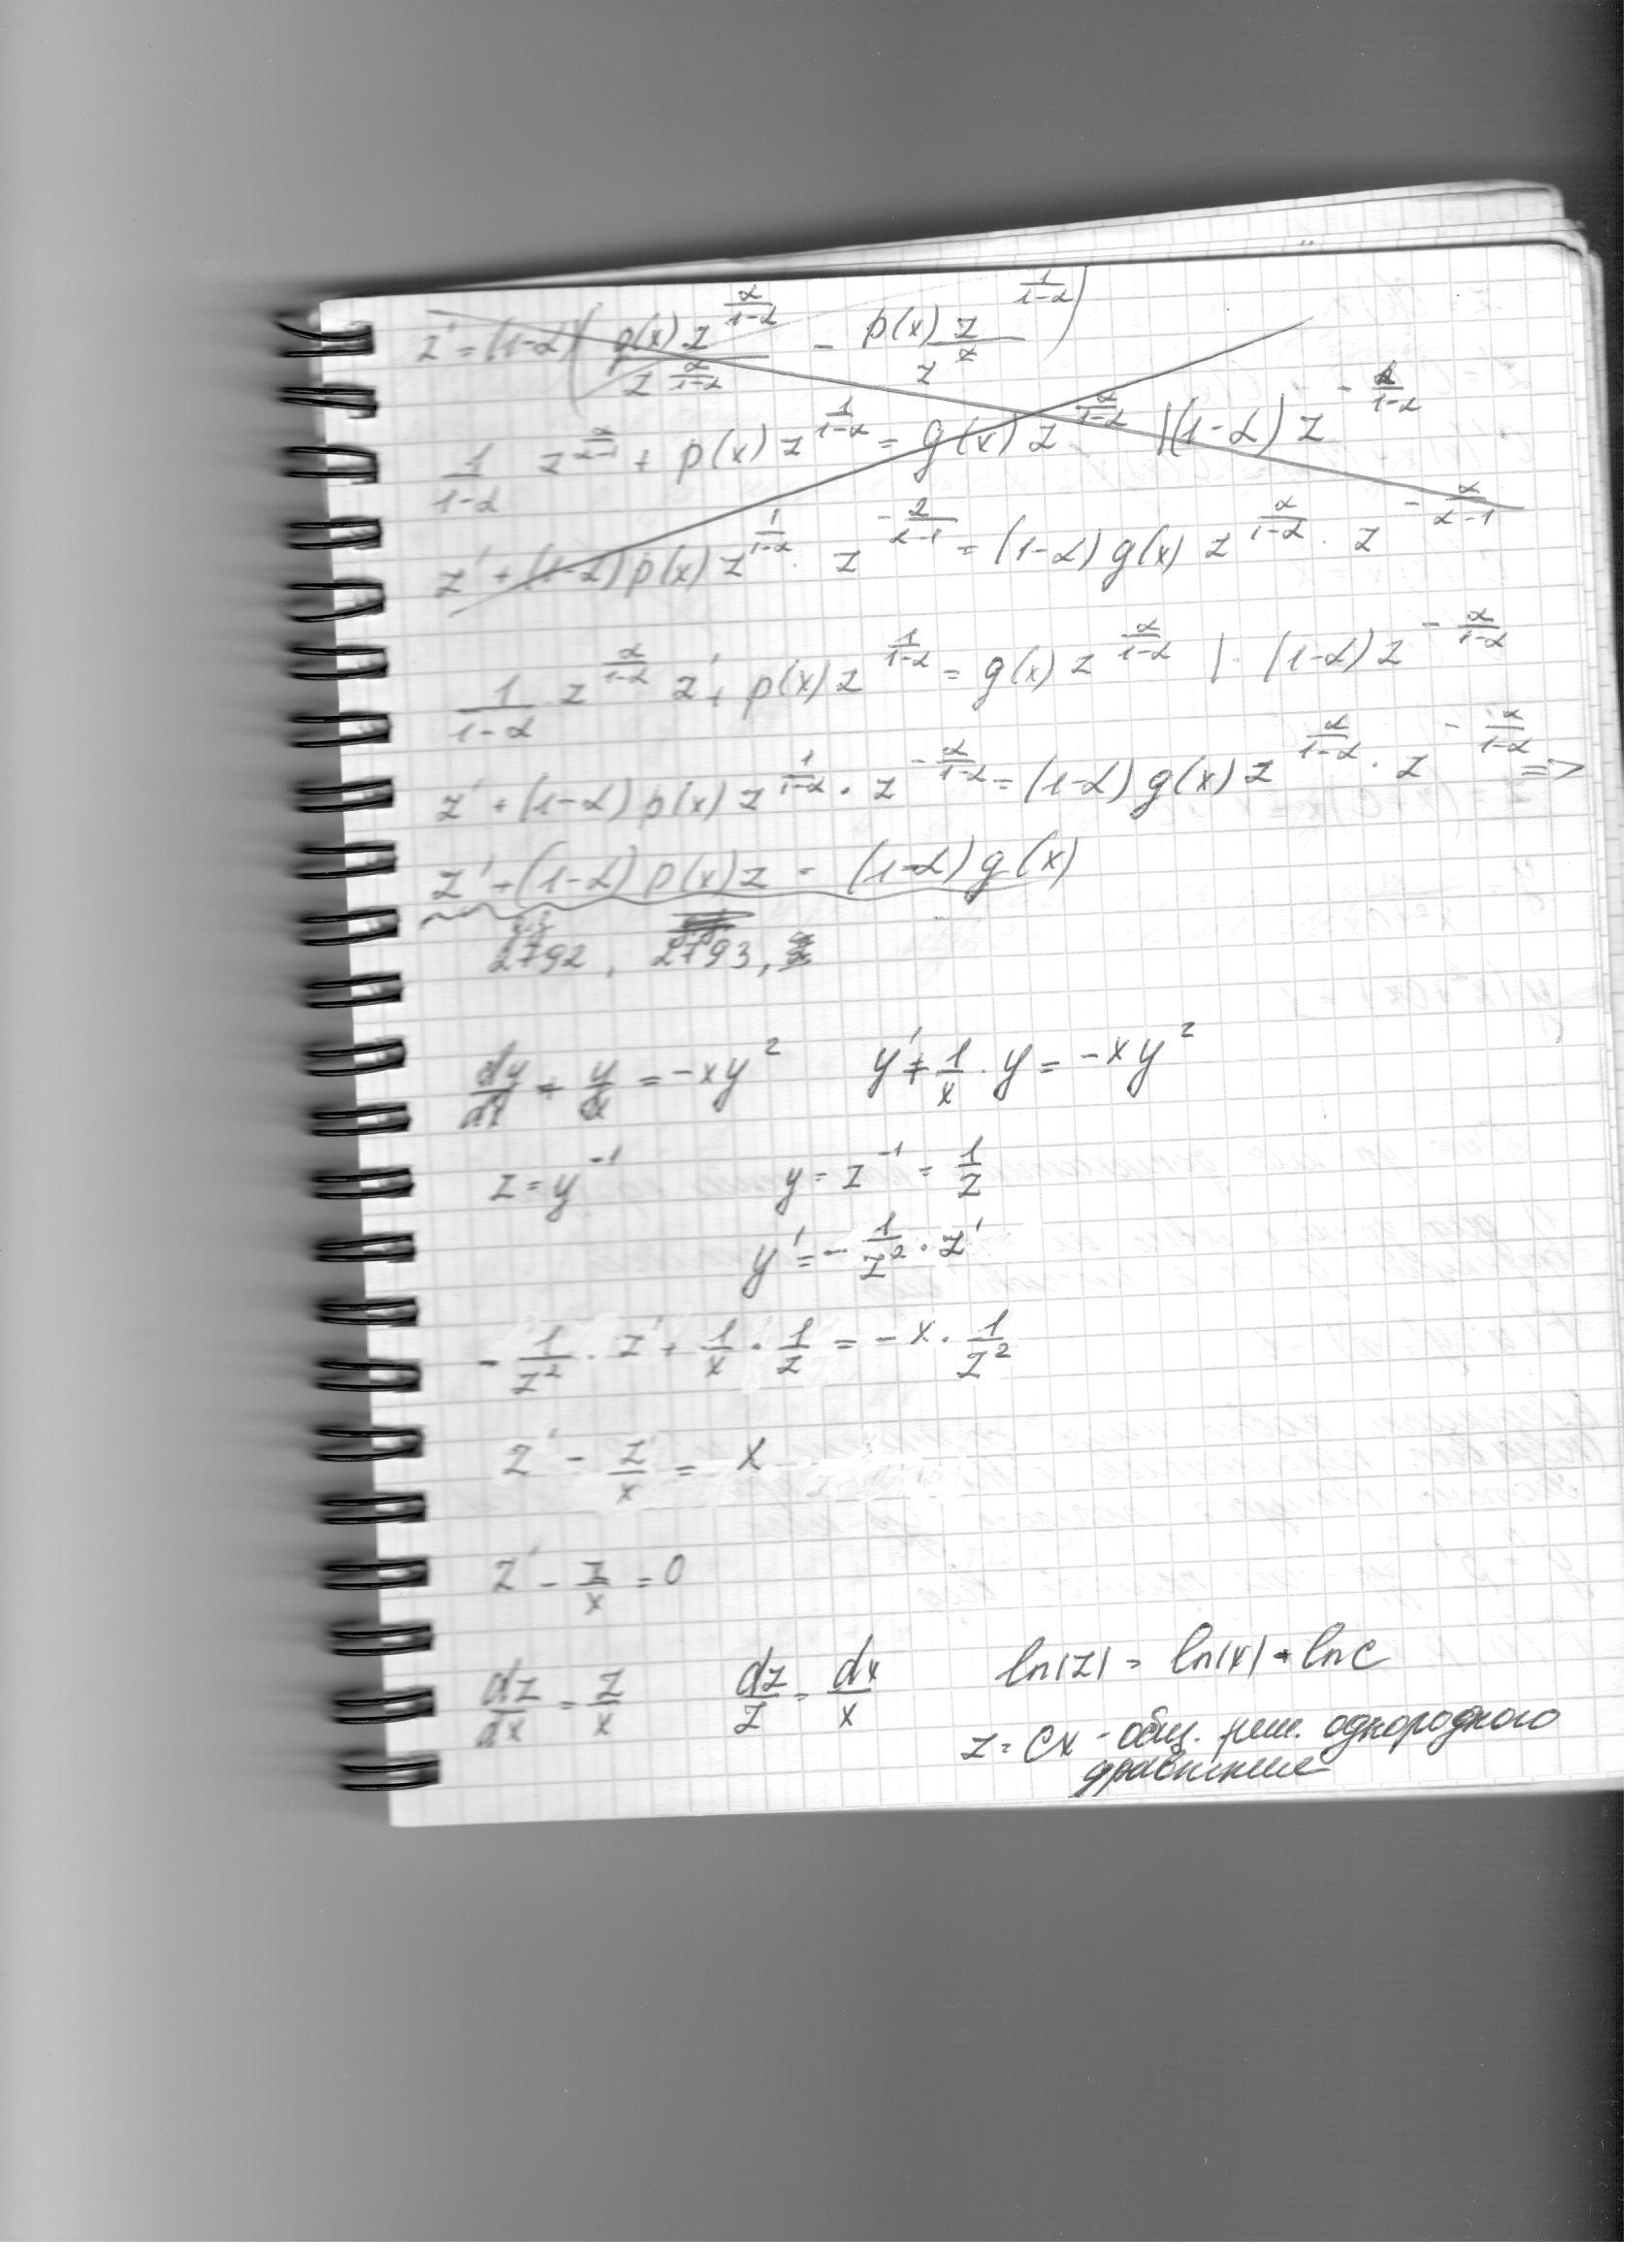 z' = (1-α)( g(x) z^{α/(1-α)} / z^{α/(1-α)} - p(x) z^{1/(1-α)} / z^{α} )
1/(1-α) z^{α/(α-1)} + p(x) z^{1/(1-α)} = g(x) z^{α/(1-α)} |(1-α) z^{-α/(1-α)}
z' + (1-α) p(x) z^{1/(1-α)} · z^{-α/(α-1)} = (1-α) g(x) z^{α/(1-α)} · z^{-α/(α-1)}
1/(1-α) z^{α/(1-α)} z' + p(x) z^{1/(1-α)} = g(x) z^{α/(1-α)} | · (1-α) z^{-α/(1-α)}
z' + (1-α) p(x) z^{1/(1-α)} · z^{-α/(1-α)} = (1-α) g(x) z^{α/(1-α)} · z^{-α/(1-α)} =>
z' + (1-α) p(x) z = (1-α) g(x)
2792, 2793,
dy/dx + y/x = -xy² y' + 1/x · y = -xy²
z = y^{-1} y = z^{-1} = 1/z
y' = - 1/z² · z'
- 1/z² · z' + 1/x · 1/z = -x · 1/z²
z' - z/x = x
z' - z/x = 0
dz/dx = z/x dz/z = dx/x ln|z| = ln|x| + ln c
z = cx - общ. реш. однородного
уравнения